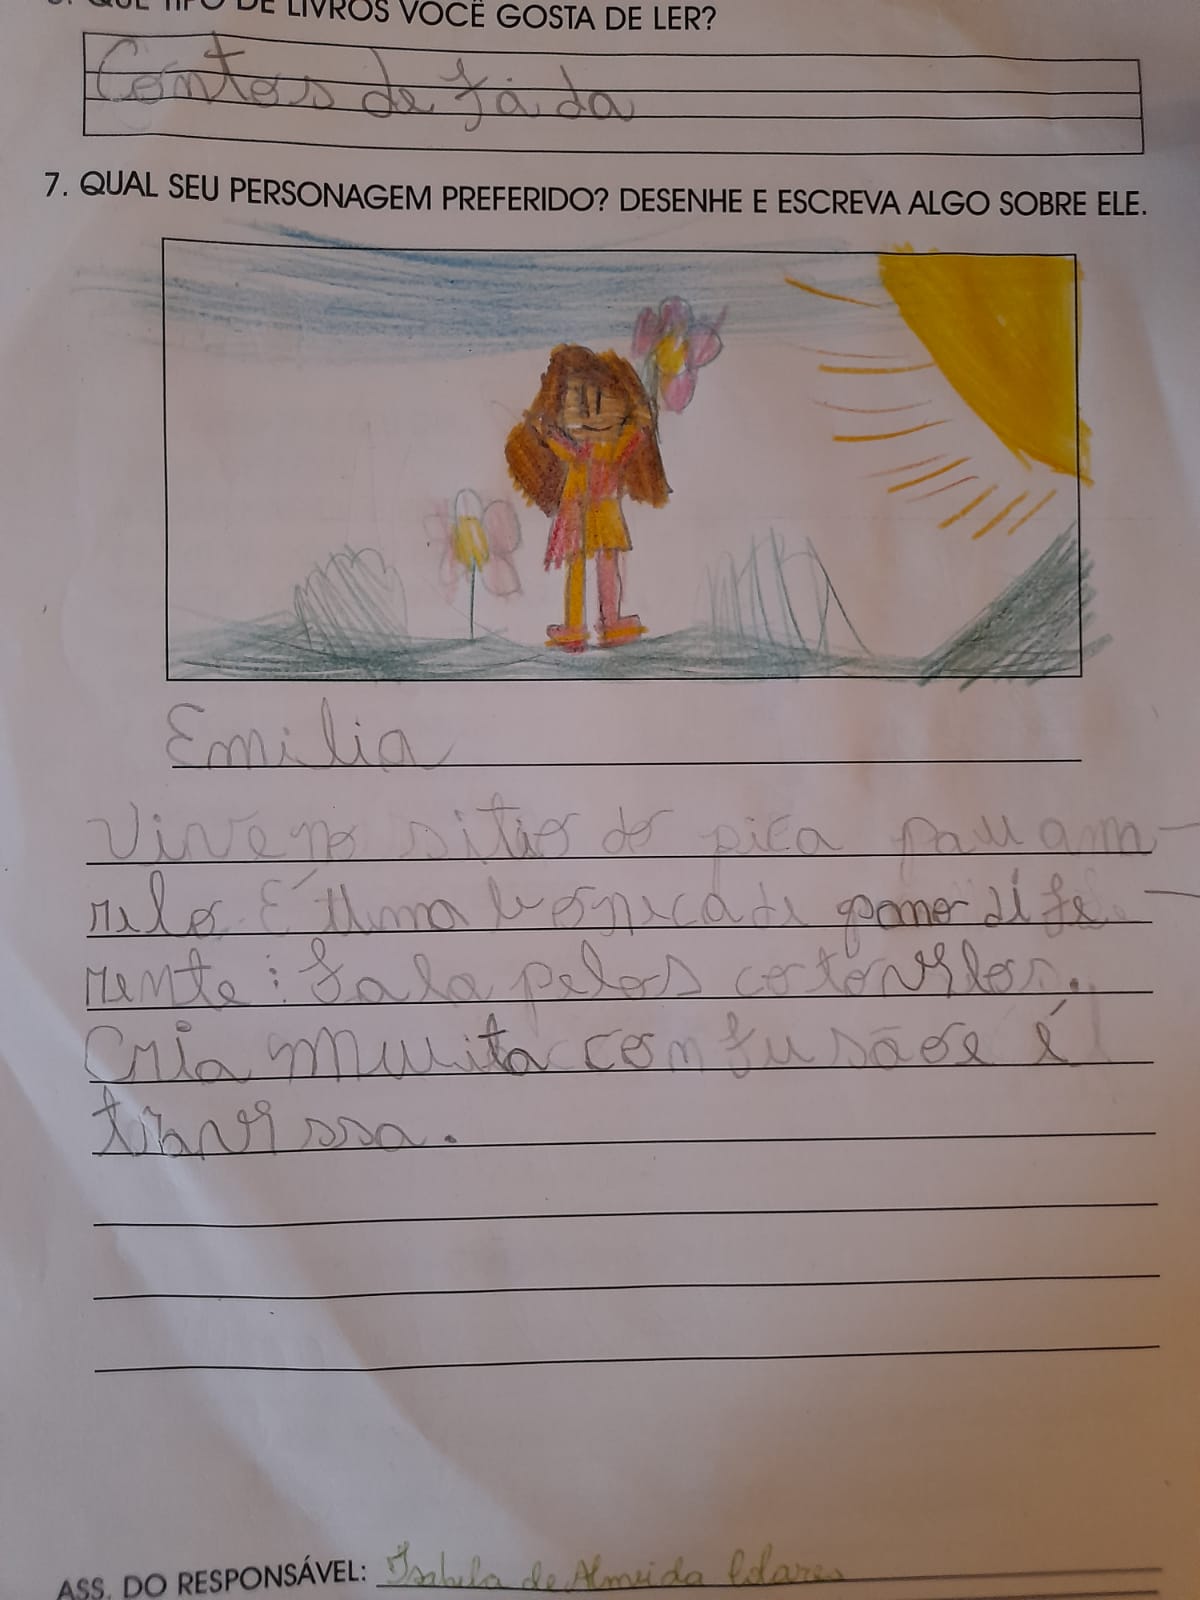 QUE TIPO DE LIVROS VOCÊ GOSTA DE LER?
Contos de fáda
7. QUAL SEU PERSONAGEM PREFERIDO? DESENHE E ESCREVA ALGO SOBRE ELE.
Emilia
Vive no sitio do pica pau am-
relo É uma boneca de pano dife-
rente: fala pelos cotovelos.
Cria muita confusãoe é
travessa.
ASS. DO RESPONSÁVEL: Isabela de Almeida